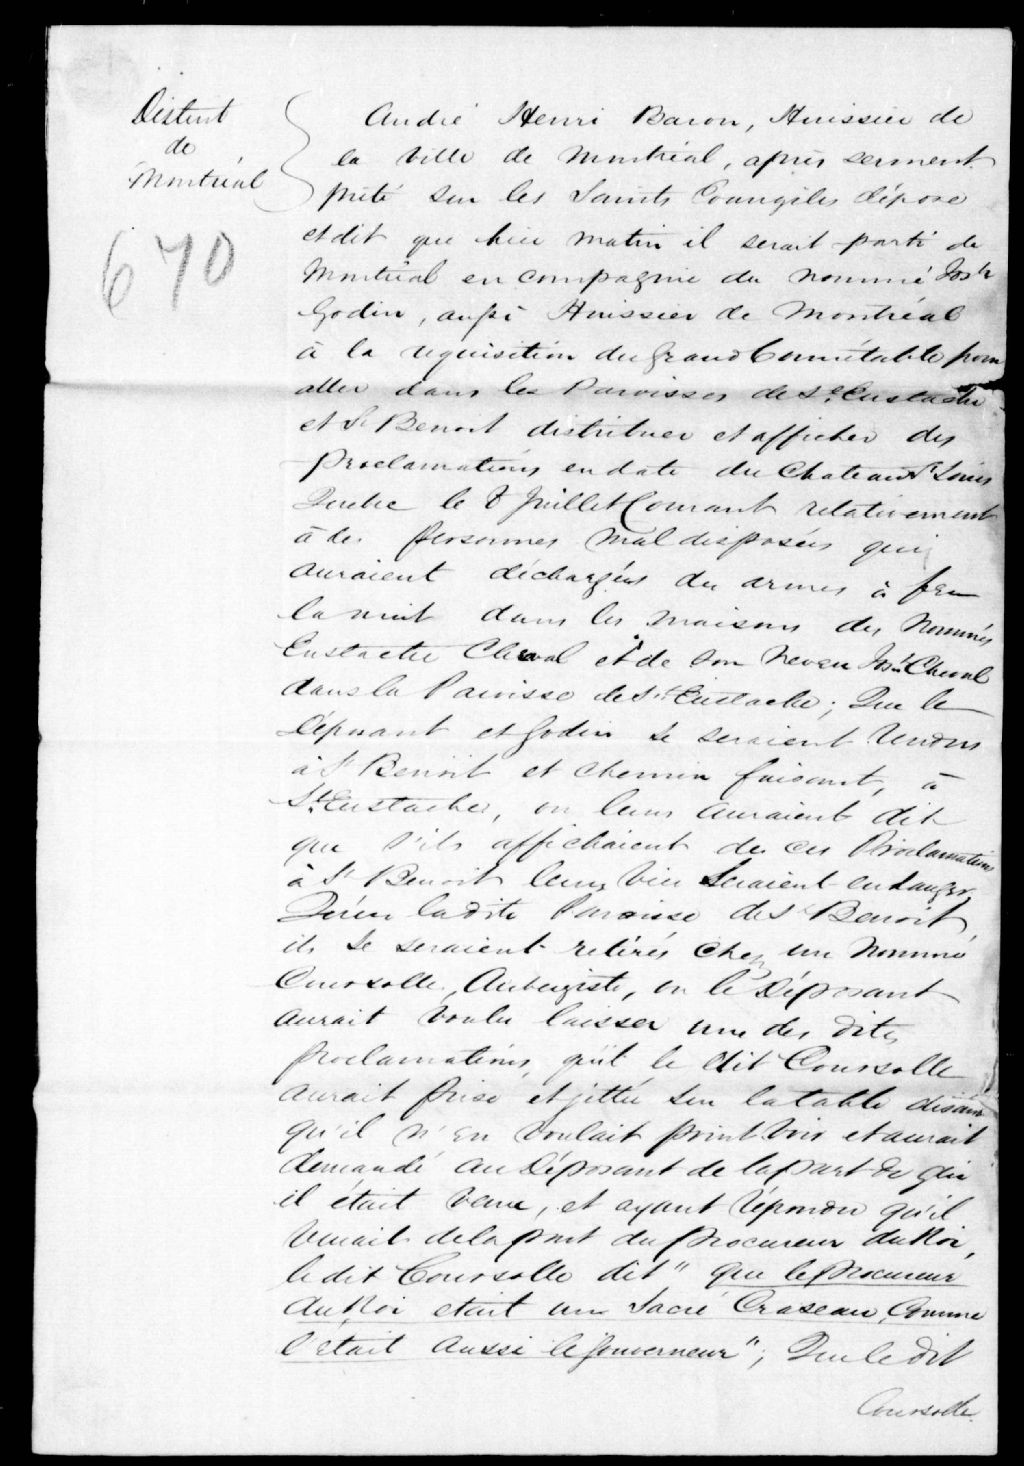 District
de
Montréal
670
André Henri Baron, Huissier de
la ville de Montréal, après serment
prêté sur les Saints Evangiles dépose
et dit que hier matin il serait parti de
Montréal en compagnie du nommé Josh
Godin, aussi Huissier de Montréal
à la requisition du Grand Connétable pour
aller dans les Paroisses de St. Eustache
et St Benoit distribuer et afficher des
proclamations en date du Chateau St Louis
Quebec le 8 Juillet Courant relativement
à des personnes mal disposées qui
auraient déchargés des armes à feu
la nuit dans les maisons des Nommés
Eustache Cheval et de son neveu Josh. Cheval
dans la Paroisse de St Eustache; Que le
Déposant et Godin se seraient rendus
à St Benoit et chemin faisant, à
St. Eustache, on leurs auraient dit
que s'ils affichaient de ces Proclamations
à St Benoit leurs vies seraient en danger
Qu'en la dite Paroisse de St Benoit,
ils se seraient retirés chez un nommé
Coursolle, Aubergiste, où le Déposant
aurait voulu laisser une des dites
proclamations, que le dit Coursolle
aurait prise et jittée sur la table disant
qu'il n'en voulait point voir et aurait
demandé au Déposant de la part de qui
il était venu, et ayant répondu qu'il
venait de la part du procureur du Roi,
le dit Coursolle dit " que le procureur
du Roi etait un Sacré Craseau, Comme
l'etait aussi le Gouverneur"; Que le dit
Coursolle